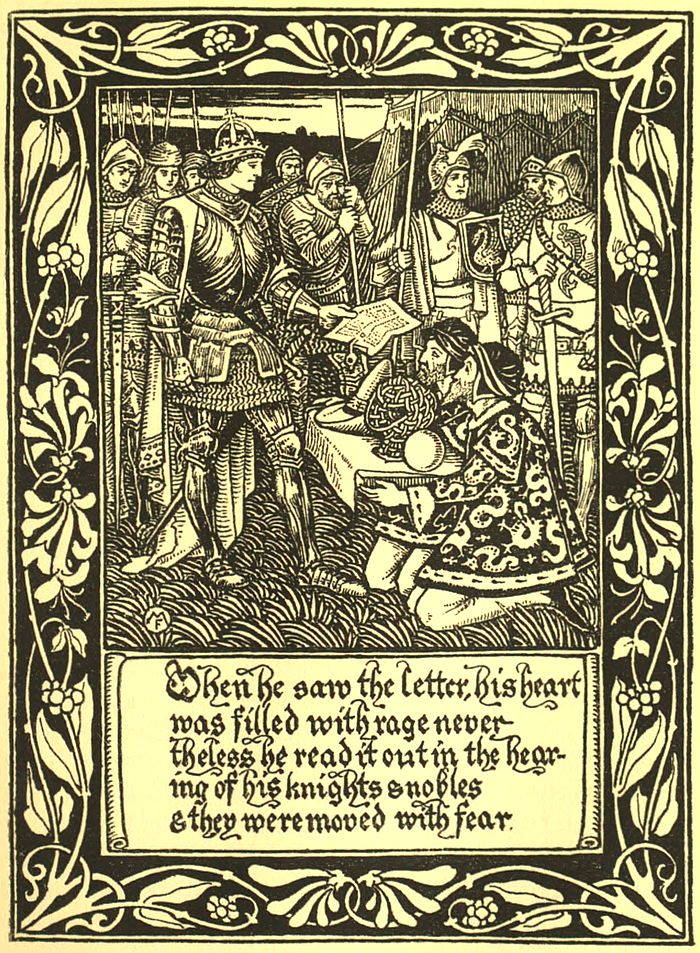 When he saw the letter, his heart
was filled with rage never
theless he read it out in the hear-
ing of his knights & nobles
& they were moved with fear.